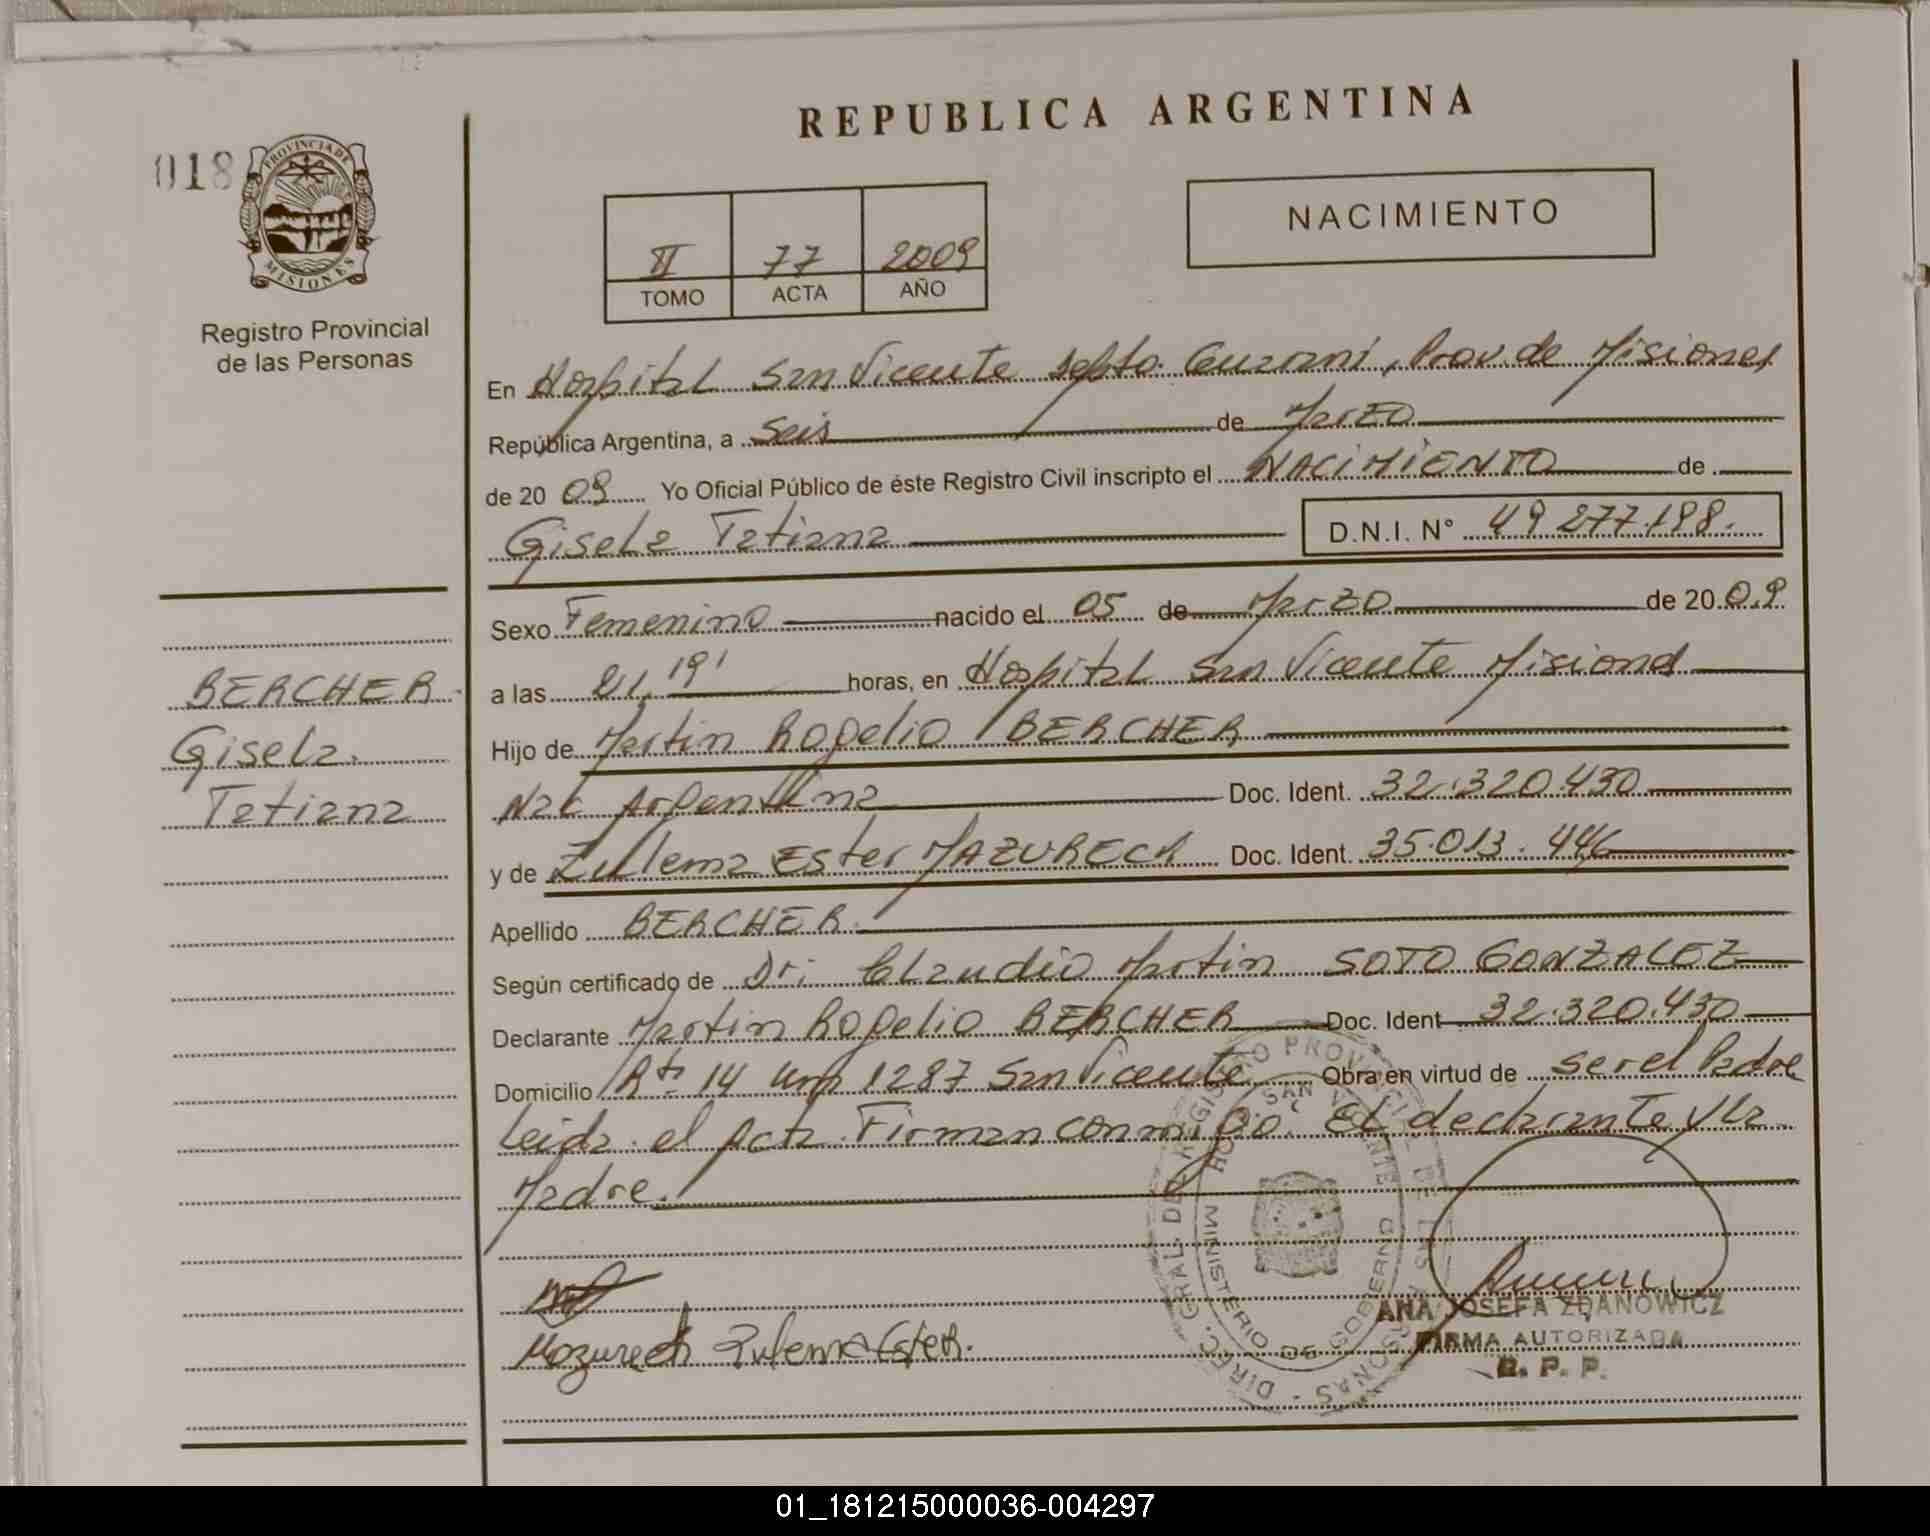 REPUBLICA ARGENTINA
018
PROVINCIA DE
MISIONES
Registro Provincial
de las Personas
NACIMIENTO
II 77 2009
TOMO ACTA AÑO
En Hospital San Vicente Depto. Guarani, Prov. de Misiones
República Argentina, a Seis de Marzo
de 20 09 Yo Oficial Público de éste Registro Civil inscripto el NACIMIENTO de
Gisela Tatiana D.N.I. N° 49.277.198.
Sexo Femenino nacido el 05 de Marzo de 20 09
a las 21,19' horas, en Hospital San Vicente Misiones
Hijo de Martin Rogelio BERCHER
Nac Argentina Doc. Ident. 32.320.430
y de Zulema Ester MAZURECK Doc. Ident. 35.013.446
Apellido BERCHER.
Según certificado de Dr: Claudio Martin SOTO GONZALEZ
Declarante Martin Rogelio BERCHER Doc. Ident 32.320.430
Domicilio Rta 14 km 1287 San Vicente Obra en virtud de ser el Padre
Leida el Acta Firman conmigo El declarante y la
Madre.
BERCHER
Gisela.
Tatiana
Mazureck Zulema Ester.
DIREC. GRAL. DEL REGISTRO PROVINCIAL DE LAS PERSONAS
MINISTERIO DE GOBIERNO
SAN VICENTE
ANA JOSEFA ZDANOWICZ
FIRMA AUTORIZADA
R. P. P.
01_181215000036-004297